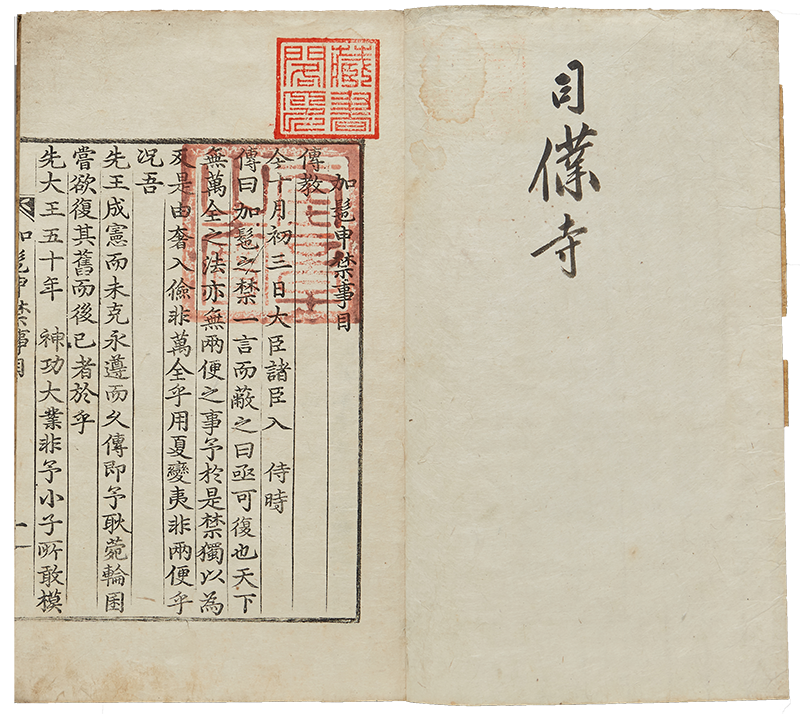 司僕寺
藏書
閣印
加髢申禁事目
傳教
今十月初三日大臣諸臣入 侍時
傳曰加髢之禁一言而蔽之曰亟可復也天下
無萬全之法亦無兩便之事予於是禁獨以為
反是由奢入儉非萬全乎用夏變夷非兩便乎
况吾
先王成憲而未克永遵而久傳即予耿菀輪囷
嘗欲復其舊而後已者於乎
先大王五十年 神功大業非予小子所敢模
加髢申禁事目 一